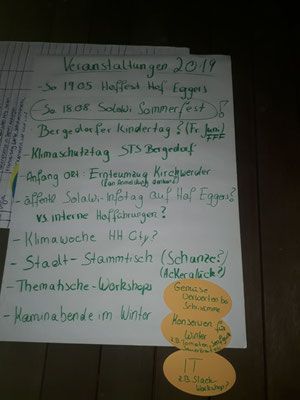 Veranstaltungen 2019
- So 19.05 Hoffest Hof Eggers
- So 18.08 Solawi Sommerfest ?
- Bergedorfer Kindertag? (Fr. Juni)
- Klimaschutztag STS Bergedorf
- Anfang Okt. Ernteumzug Kirchwerder
- öffentl. Solawi-Infotag auf Hof Eggers?
vs interne Hofführungen?
- Klimawoche HH City?
- Stadt-Stammtisch (Schanze?)
(Ackerglück?)
- Thematische-Workshops
- Kaminabende im Winter
Gemüse
verwerten bei
Konserven für
Winter
IT
z.B. Slack-
Workshop?